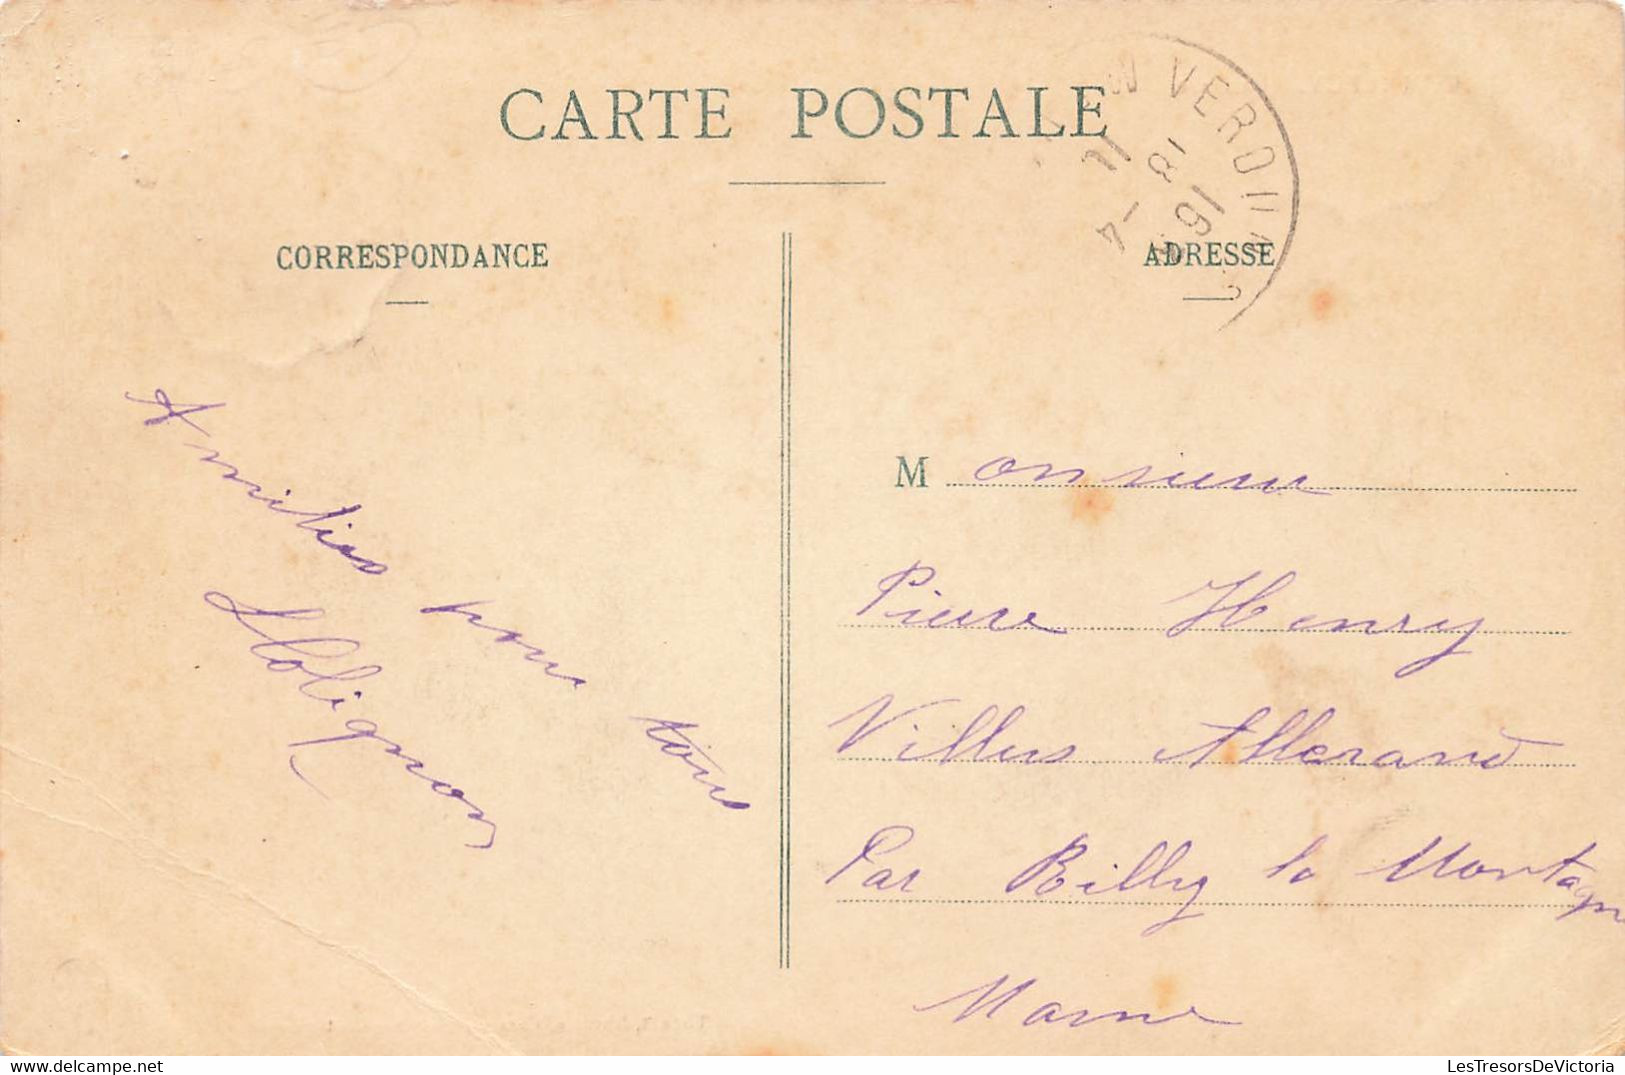 CARTE POSTALE
VERDUN
18
11 - 4
16
CORRESPONDANCE
ADRESSE
Amitiés pour tous
M onsieur
Pierre Henry
Villers Allerand
Par Rilly la Montagne
Marne
delcampe.net
LesTresorsDeVictoria